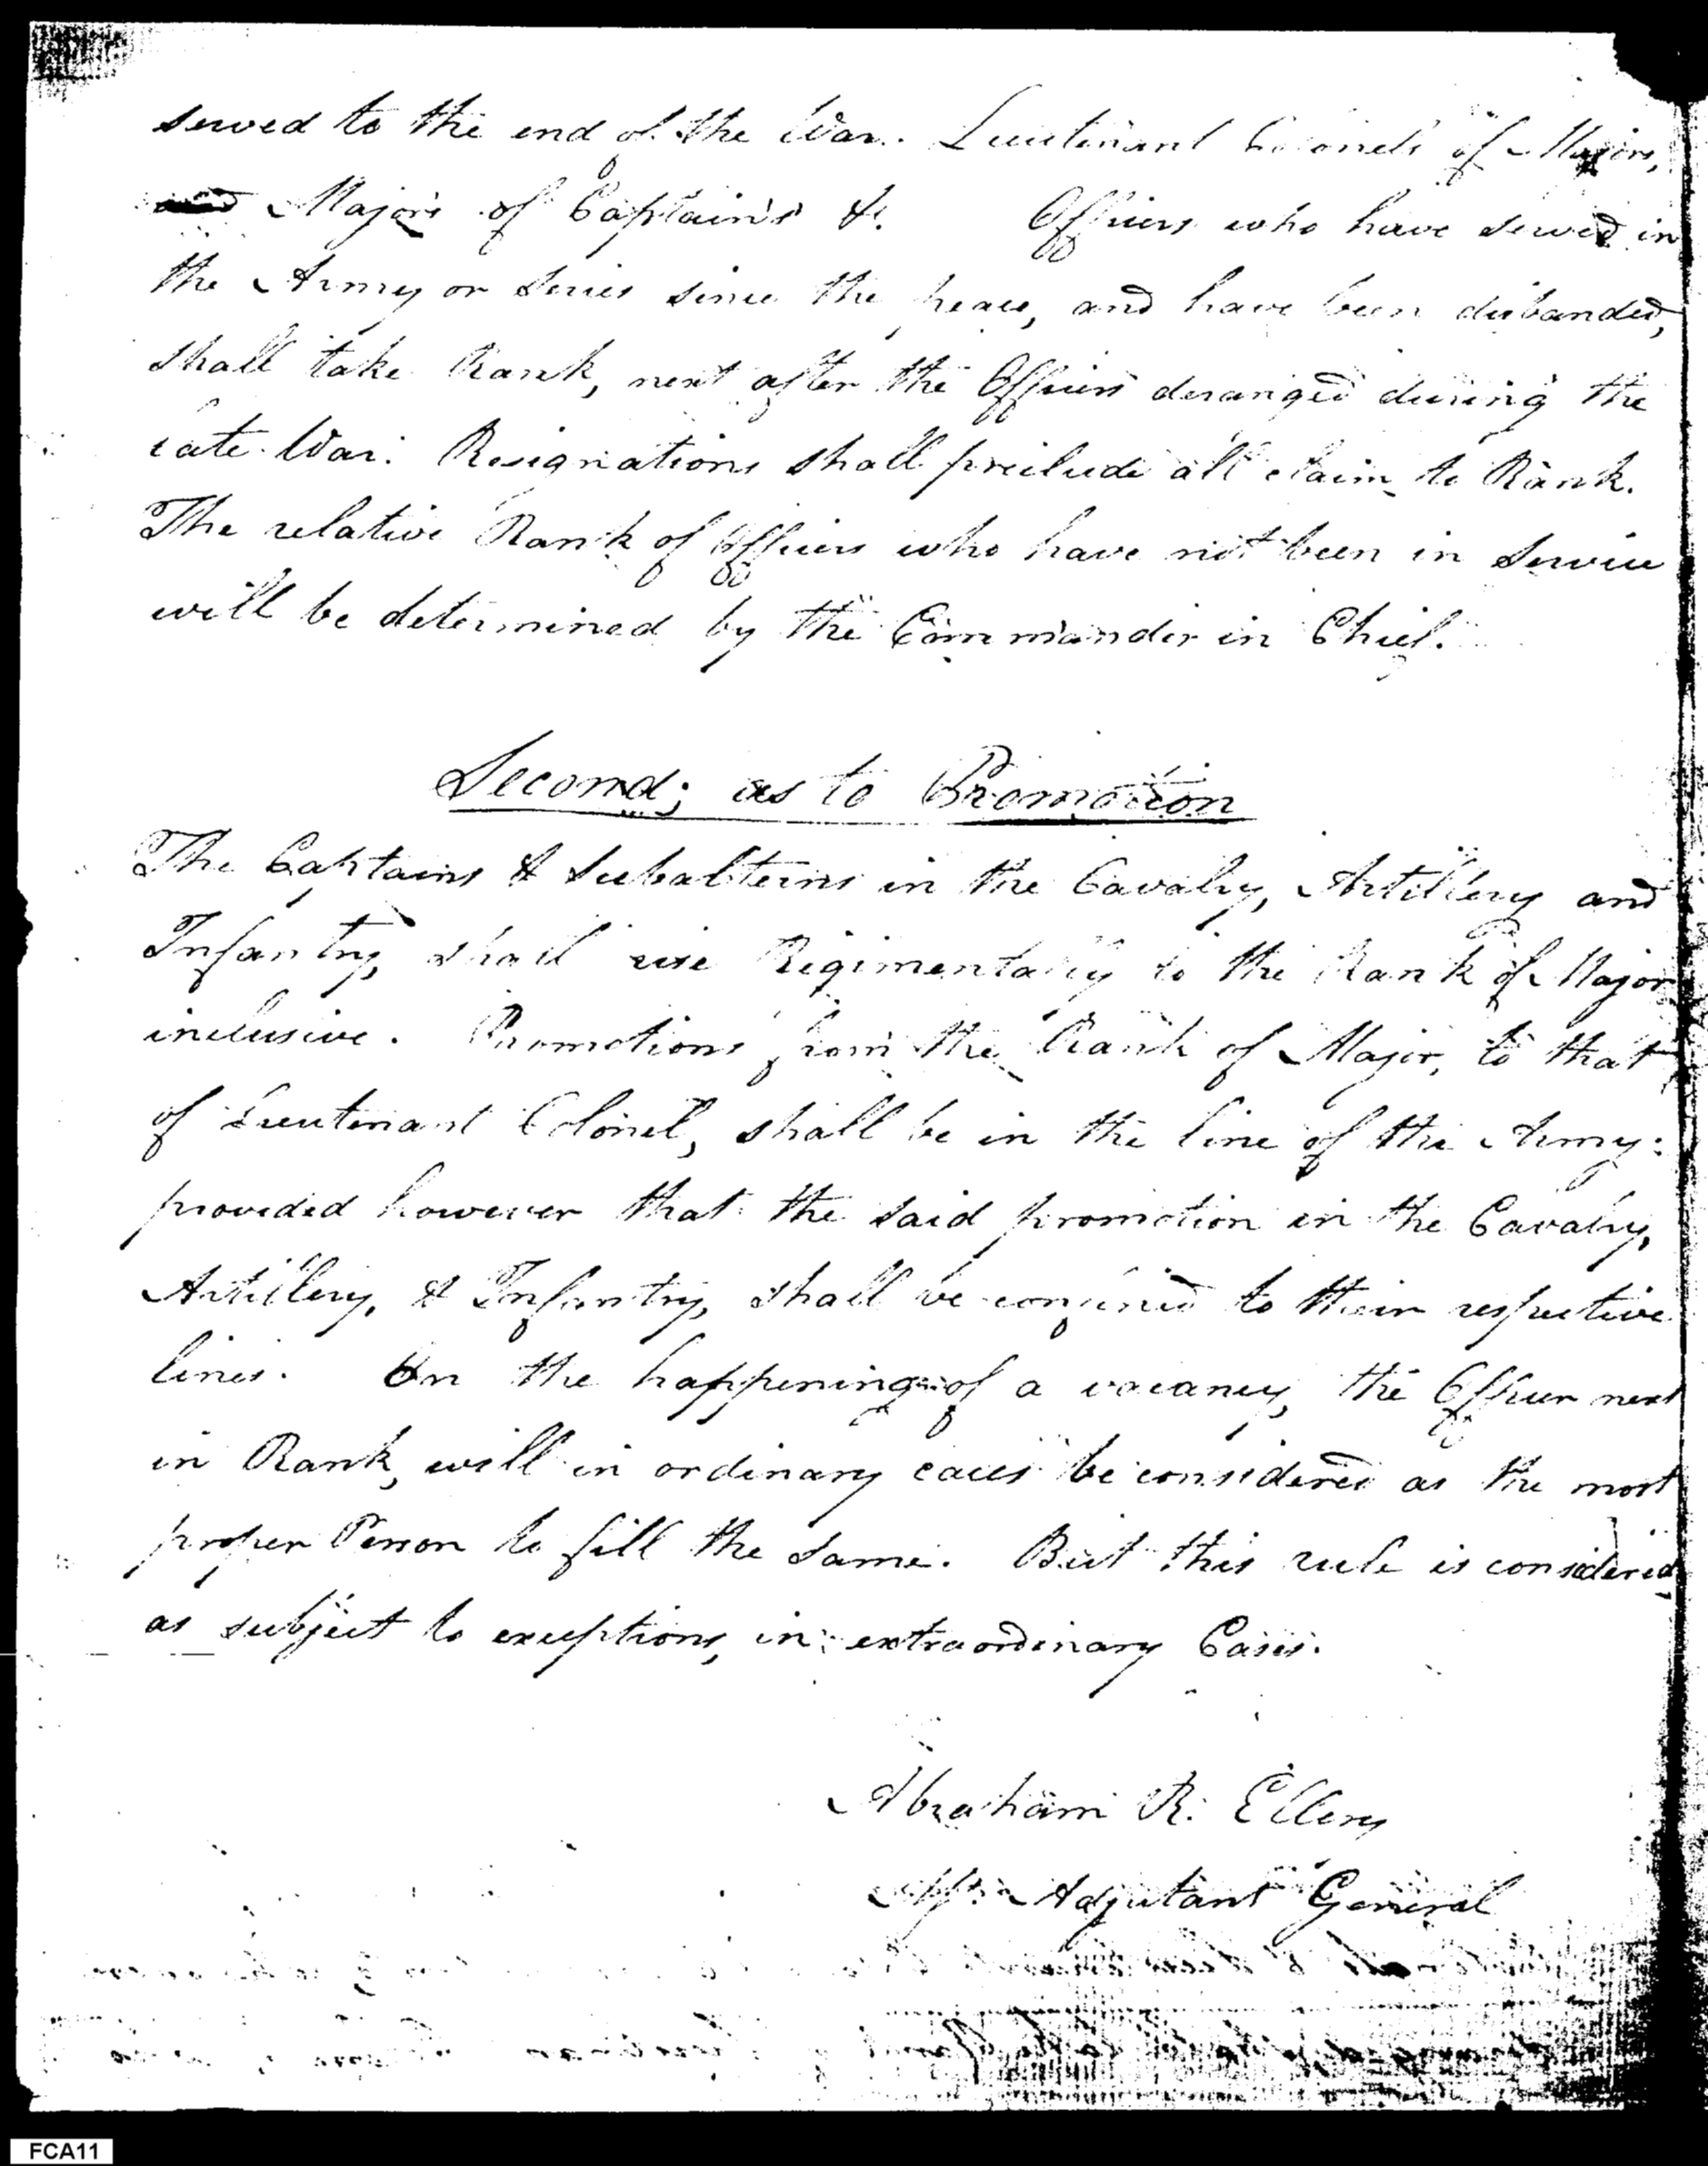 served to the end of the War. Lieutenant Colonels of Majors,
and Majors of Captains &. Officers who have served in
the Army or Levies since the peace, and have been disbanded,
shall take Rank, next after the Officers deranged during the
late War. Resignations shall preclude all claim to Rank.
The relative Rank of Officers who have not been in Service
will be determined by the Commander in Chief.
Second; as to Promotion
The Captains & Subalterns in the Cavalry, Artillery and
Infantry, shall rise Regimentally to the Rank of Major
inclusive. Promotions from the Rank of Major, to that
of Lieutenant Colonel, shall be in the line of the Army:
provided however that the said promotion in the Cavalry,
Artillery, & Infantry, shall be confined to their respective
lines. On the happening of a vacancy, the Officer next
in Rank, will in ordinary cases be considered as the most
proper Person to fill the same. But this rule is considered
as subject to exceptions, in extraordinary Cases.
Abraham R. Ellery
Adjutant General
FCA11